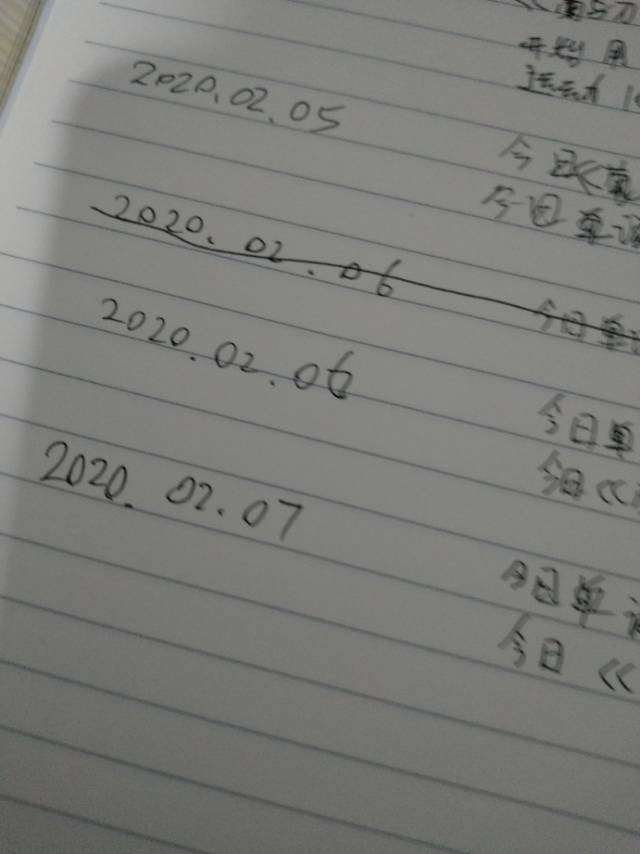 开始用
运动
2020.02.05
今日《
今日单词
2020.02.06 今日单
2020.02.06
今日单
今日《
2020.02.07
今日单词
今日《